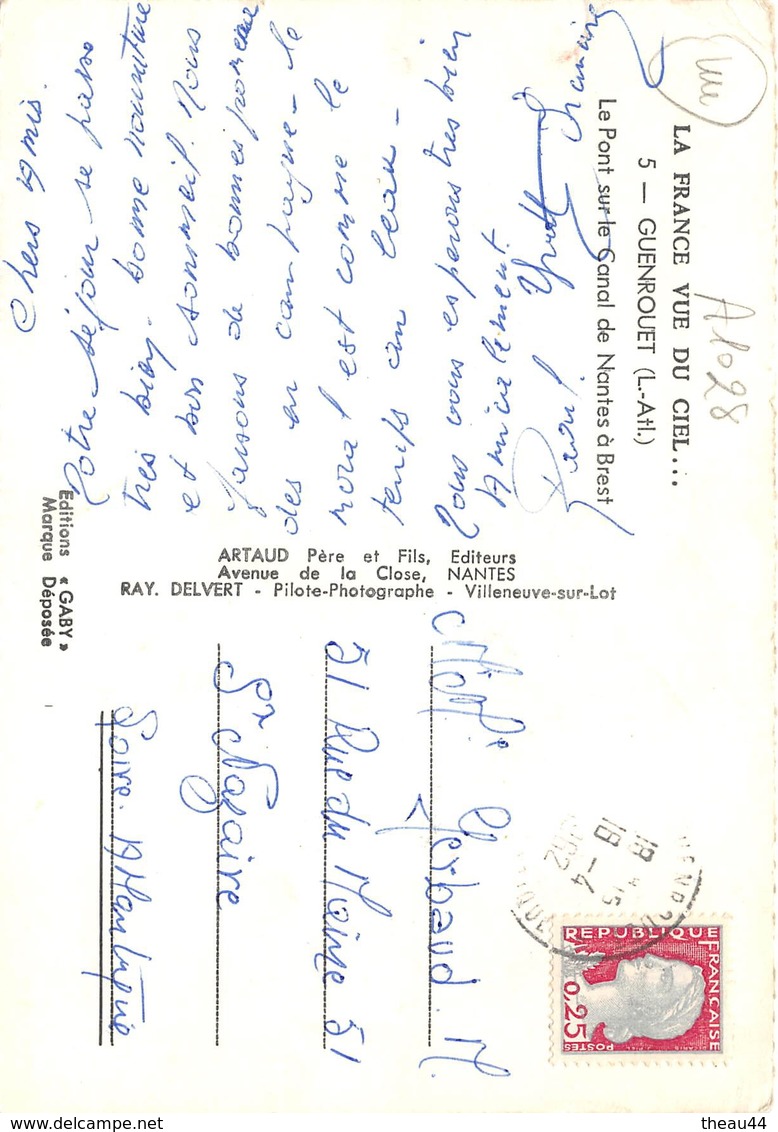 LA FRANCE VUE DU CIEL...
5 — GUENROUET (L.-Atl.)
Le Pont sur le Canal de Nantes à Brest
A1028
Vue
Chers Amis.
Notre séjour se passe
très bien. bonne nourriture
et bon sommeil. Nous
faisons de bonnes promena
des en campagne - le
moral est comme le
temps au beau -
Nous vous esperons tres bien
Amicalement
Editions « GABY »
Marque Déposée
ARTAUD Père et Fils, Editeurs
Avenue de la Close, NANTES
RAY. DELVERT - Pilote-Photographe - Villeneuve-sur-Lot
Gerbaud. M.
51 Rue du Maine 51
St Nazaire
Loire-Atlantique
18 H15
18 -4
REPUBLIQUE FRANÇAISE
0,25
POSTES
theau44